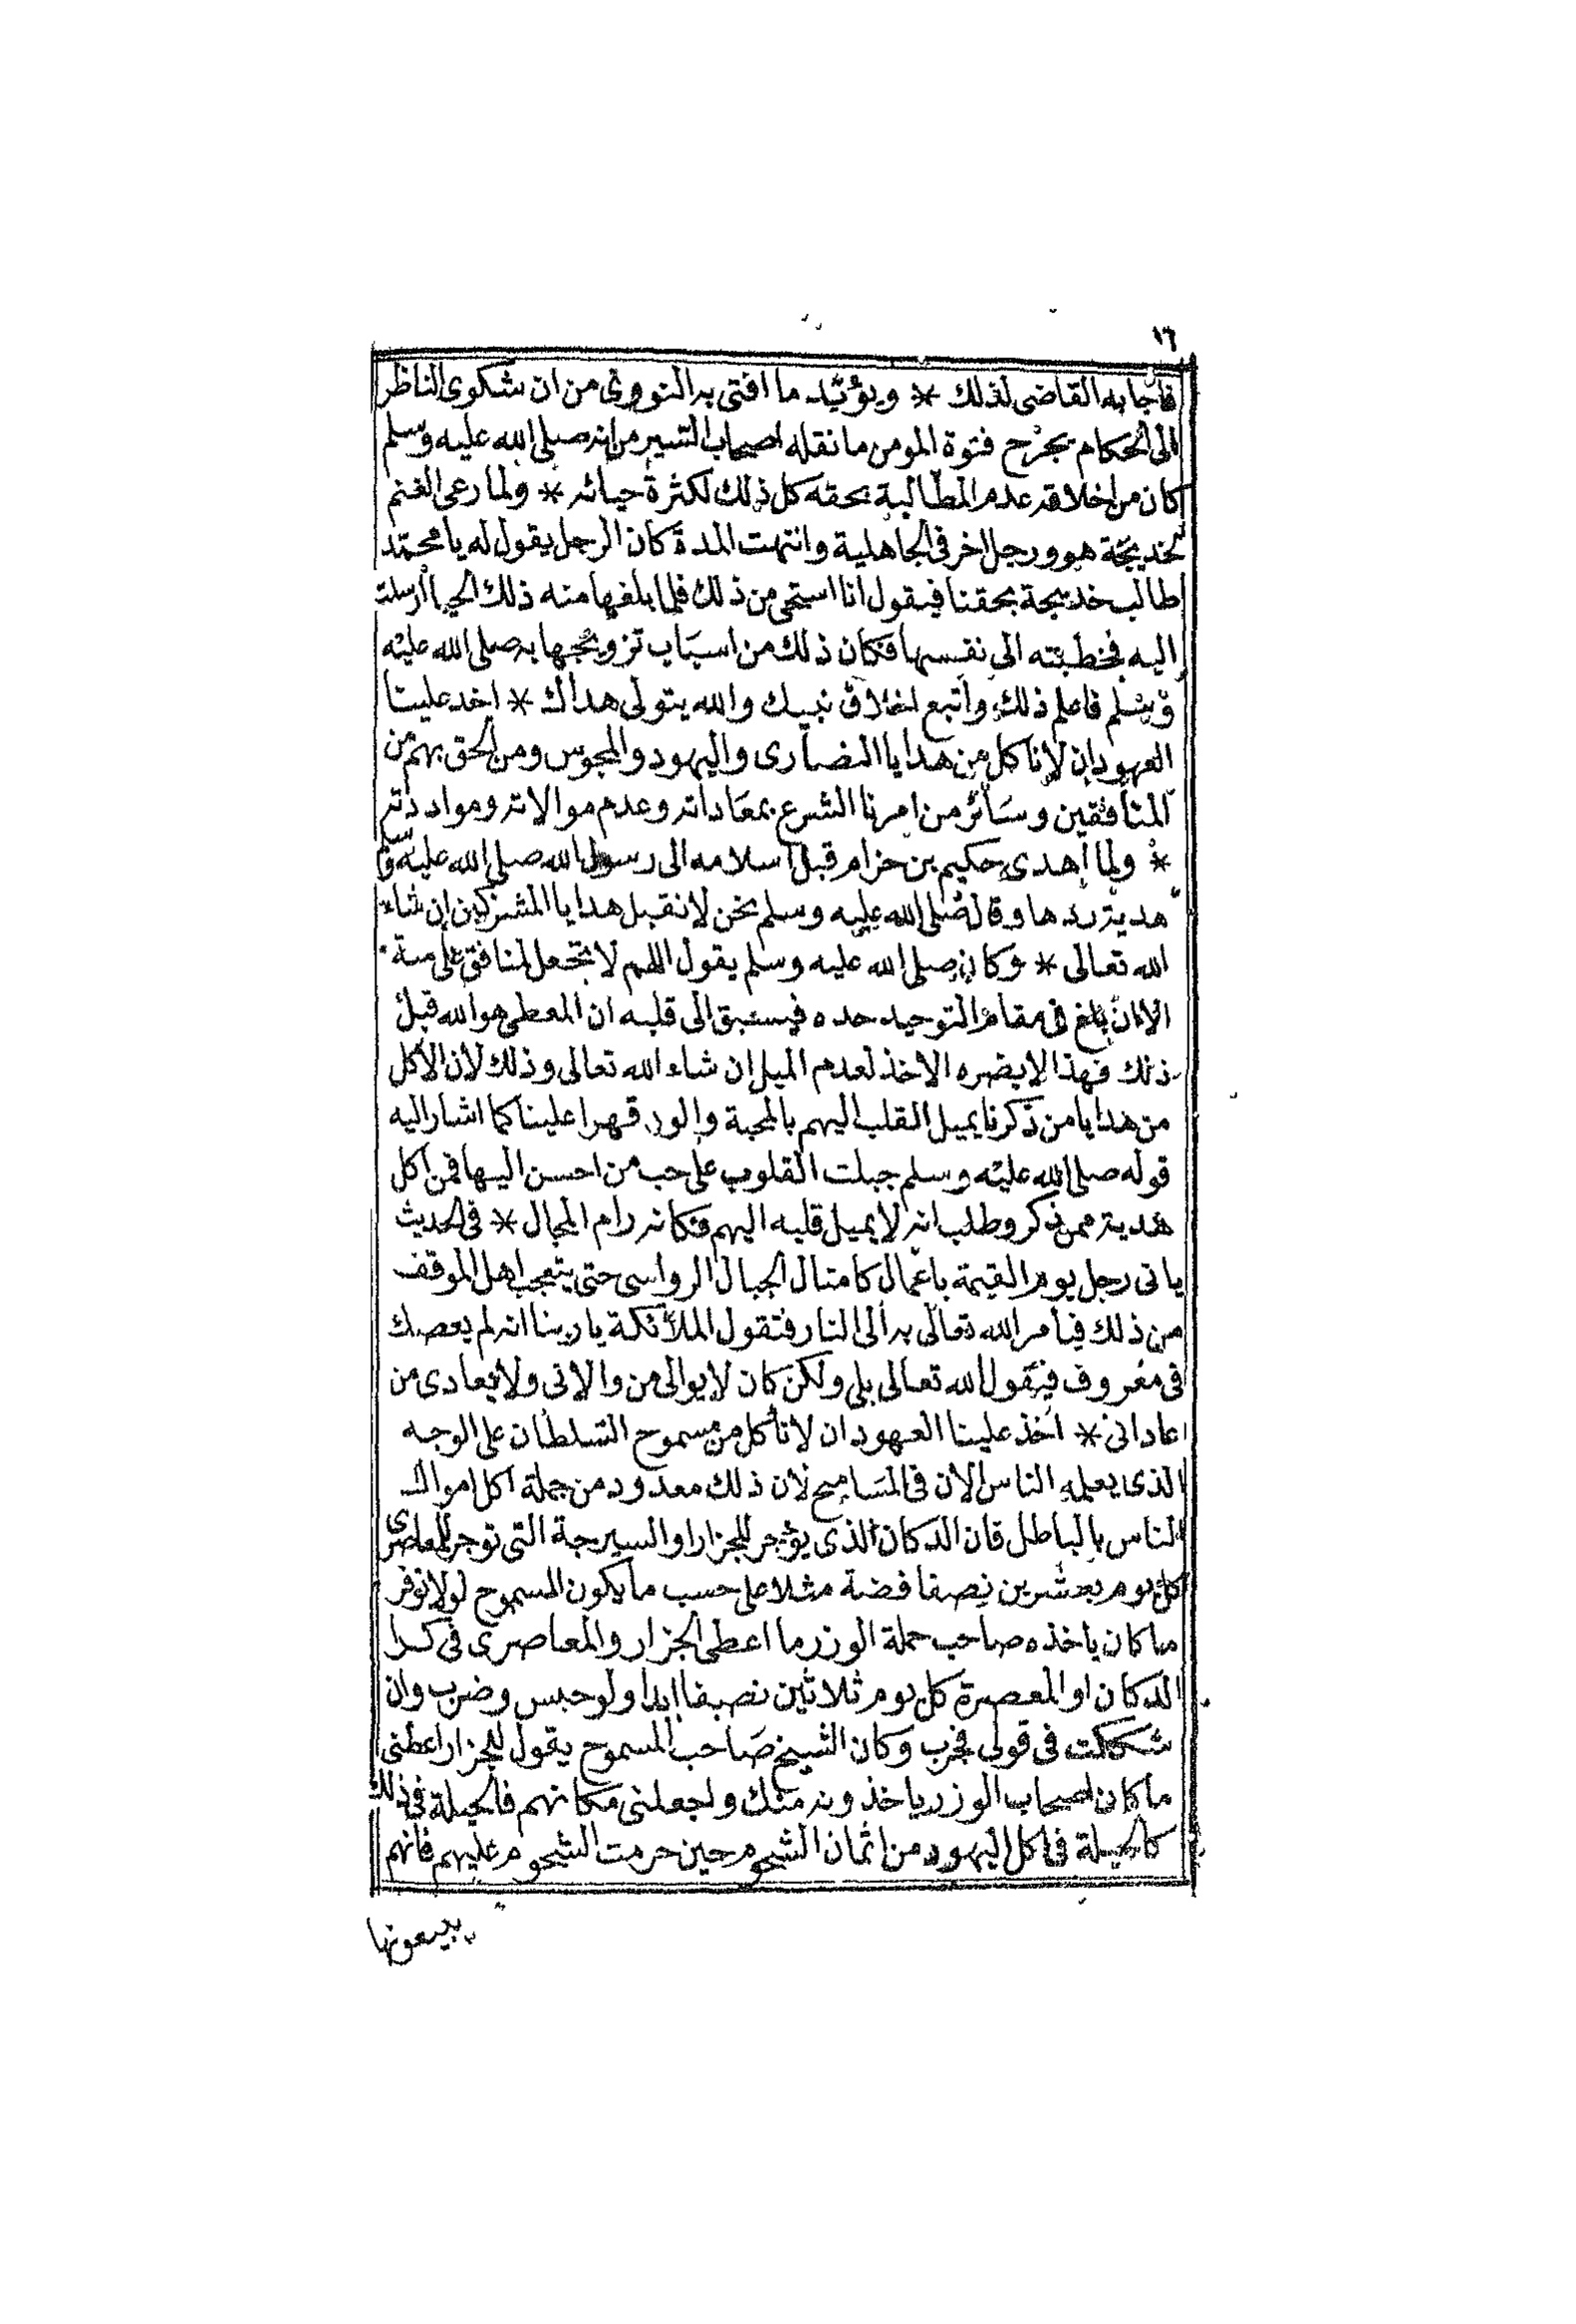 ١٦
فاجابه القاضى لذلك * ويؤيد ما افتى به النووى من ان شكوى الناظر
الى الحكام يجرح فتوة المومن ما نقله اصحاب السير من انه صلى الله عليه وسلم
كان من اخلاقه عدم المطالبة بحقه كل ذلك لكثرة حيائه * ولما رعى الغنم
لخديجة هو ورجل اخر فى الجاهلية وانتهت المدة كان الرجل يقول له يا محمد
طالب خديجة بحقنا فيقول انا استحى من ذلك فلما بلغها منه ذلك الحيا ارسلت
اليه فخطبته الى نفسها فكان ذلك من اسباب تزويجها به صلى الله عليه
وسلم فاعلم ذلك واتبع اخلاق نبيك والله يتولى هداك * اخذ علينا
العهود ان لا ناكل من هدايا النصارى واليهود والمجوس ومن الحق بهم من
المنافقين وسائر من امرنا الشرع بمعاداته وعدم موالاته وموادّته
* ولما أهدى حكيم بن حزام قبل اسلامه الى رسول الله صلى الله عليه وسلم
هدية ردها وقال صلى الله عليه وسلم نحن لا نقبل هدايا المشركين ان شاء
الله تعالى * وكان صلى الله عليه وسلم يقول اللهم لا تجعل لمنافق على منة
الا ان بلغ فى مقام التوحيد حده فيسبق الى قلبه ان المعطى هو الله قبل
ذلك فهذا لا يضره الاخذ لعدم الميل ان شاء الله تعالى وذلك لان الاكل
من هدايا من ذكرنا يميل القلب اليهم بالمحبة والود قهرا علينا كما اشار اليه
قوله صلى الله عليه وسلم جبلت القلوب على حب من احسن اليها فمن اكل
هدية ممن ذكر وطلب انه لا يميل قلبه اليهم فكانه رام المحال * فى الحديث
ياتى رجل يوم القيمة باعمال كامثال الجبال الرواسى حتى يتعجب اهل الموقف
من ذلك فيأمر الله تعالى به الى النار فتقول الملائكة يا ربنا انه لم يعصك
فى معروف فيقول الله تعالى بلى ولكن كان لا يوالى من والانى ولا يعادى من
عادانى * اخذ علينا العهود ان لا نأكل من مسموح السلطان على الوجه
الذى يعمله الناس الان فى المساميح لان ذلك معدود من جملة اكل اموال
الناس بالباطل فان الدكان الذى يؤجر للجزار او السيرجة التى توجر للمعاصرى
كل يوم بعشرين نصفا فضة مثلا على حسب ما يكون المسموح لولا توفر
ما كان ياخذه صاحب حملة الوزر ما اعطى الجزار والمعاصرى فى كرا
الدكان او المعصرة كل يوم ثلاثين نصفا ابدا ولو حبس وضرب وان
شككت فى قولى فجرب وكان الشيخ صاحب المسموح يقول للجزار اعطنى
ما كان اصحاب الوزر ياخذونه منك واجعلنى مكانهم فالحيلة فى ذلك
كالحيلة فى اكل اليهود من اثمان الشحوم حين حرمت الشحوم عليهم فانهم
يبيعونها